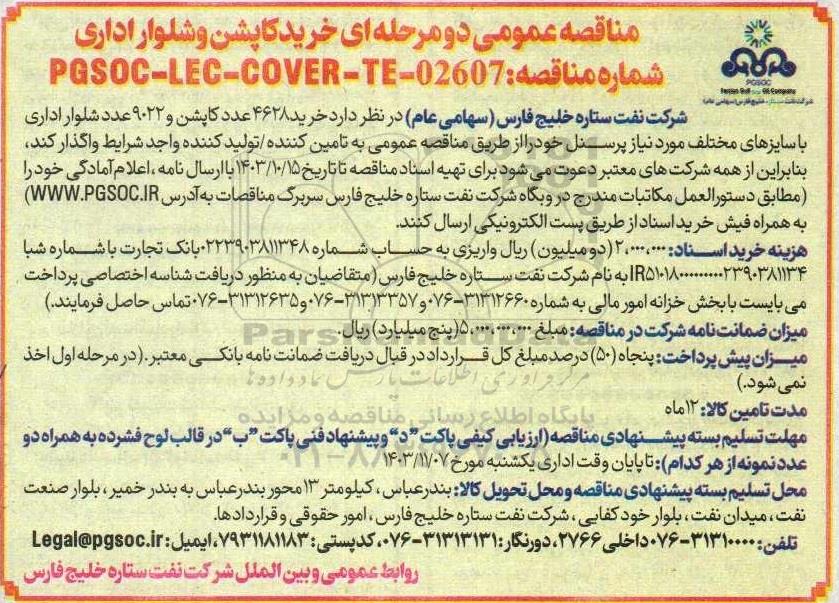 مناقصه عمومی دو مرحله ای خرید کاپشن و شلوار اداری
شماره مناقصه: PGSOC-LEC-COVER-TE-02607
PGSOC
Persian Gulf Star Oil Company
شرکت نفت ستاره خلیج فارس (سهامی عام)
شرکت نفت ستاره خلیج فارس (سهامی عام) در نظر دارد خرید ۴۶۲۸ عدد کاپشن و ۹۰۲۲ عدد شلوار اداری
با سایزهای مختلف مورد نیاز پرسنل خود را از طریق مناقصه عمومی به تامین کننده/تولید کننده واجد شرایط واگذار کند،
بنابراین از همه شرکت های معتبر دعوت می شود برای تهیه اسناد مناقصه تا تاریخ ۱۴۰۳/۱۰/۱۵ با ارسال نامه، اعلام آمادگی خود را
(مطابق دستورالعمل مکاتبات مندرج در وبگاه شرکت نفت ستاره خلیج فارس سربرگ مناقصات به آدرس WWW.PGSOC.IR)
به همراه فیش خرید اسناد از طریق پست الکترونیکی ارسال کنند.
هزینه خرید اسناد: ۲،۰۰۰،۰۰۰ (دو میلیون) ریال واریزی به حساب شماره ۰۲۲۳۹۰۳۸۱۱۳۴۸ بانک تجارت با شماره شبا
به نام شرکت نفت ستاره خلیج فارس (متقاضیان به منظور دریافت شناسه اختصاصی پرداخت
می بایست با بخش خزانه امور مالی به شماره ۳۱۳۱۲۶۶۰-۰۷۶ و ۳۱۳۱۳۳۵۷-۰۷۶ و ۳۱۳۱۲۶۳۵-۰۷۶ تماس حاصل فرمایند.)
میزان ضمانت نامه شرکت در مناقصه: مبلغ ۵،۰۰۰،۰۰۰،۰۰۰ (پنج میلیارد) ریال.
میزان پیش پرداخت: پنجاه (۵۰) درصد مبلغ کل قرارداد در قبال دریافت ضمانت نامه بانکی معتبر. (در مرحله اول اخذ
نمی شود.)
مدت تامین کالا: ۱۲ ماه
مهلت تسلیم بسته پیشنهادی مناقصه (ارزیابی کیفی پاکت "د" و پیشنهاد فنی پاکت "ب" در قالب لوح فشرده به همراه دو
عدد نمونه از هر کدام): تا پایان وقت اداری یکشنبه مورخ ۱۴۰۳/۱۱/۰۷
محل تسلیم بسته پیشنهادی مناقصه و محل تحویل کالا: بندرعباس، کیلومتر ۱۳ محور بندرعباس به بندر خمیر، بلوار صنعت
نفت، میدان نفت، بلوار خود کفایی، شرکت نفت ستاره خلیج فارس، امور حقوقی و قراردادها.
تلفن: ۳۱۳۱۰۰۰۰-۰۷۶ داخلی ۲۷۶۶، دورنگار: ۳۱۳۱۳۱۳۱-۰۷۶، کدپستی: ۷۹۳۱۱۸۱۱۸۳، ایمیل: Legal@pgsoc.ir
روابط عمومی و بین الملل شرکت نفت ستاره خلیج فارس
مرکز فرآوری اطلاعات پارس نماد داده ها
پایگاه اطلاع رسانی مناقصه و مزایده